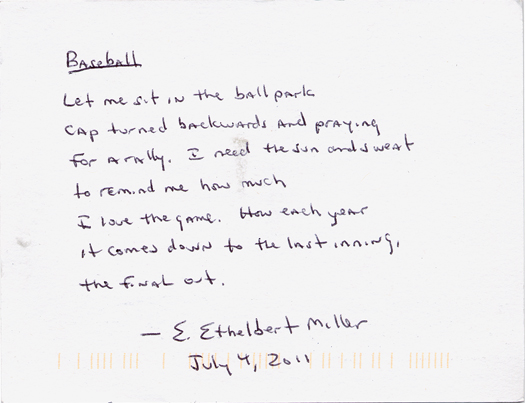 Baseball
Let me sit in the ball park
cap turned backwards and praying
for a rally. I need the sun and sweat
to remind me how much
I love the game. How each year
it comes down to the last inning,
the final out.
— E. Ethelbert Miller
July 4, 2011